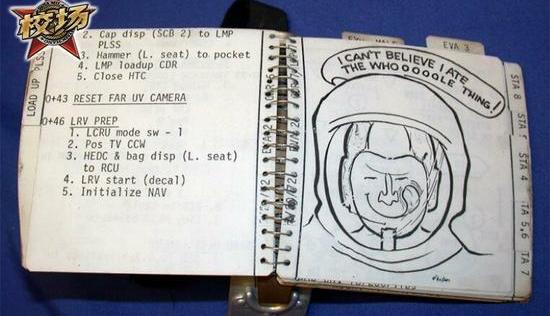 校场
2. Cap disp (SCB 2) to LMP
PLSS
3. Hammer (L. seat) to pocket
4. LMP loadup CDR
5. Close HTC
0+43 RESET FAR UV CAMERA
0+46 LRV PREP
1. LCRU mode sw - 1
2. Pos TV CCW
3. HEDC & bag disp (L. seat)
to RCU
4. LRV start (decal)
5. Initialize NAV
LOAD UP PLS
EVA 3
I CAN'T BELIEVE I ATE
THE WHOOOOOLE THING!
STA 8
STA 4
STA 5,6
TA 7